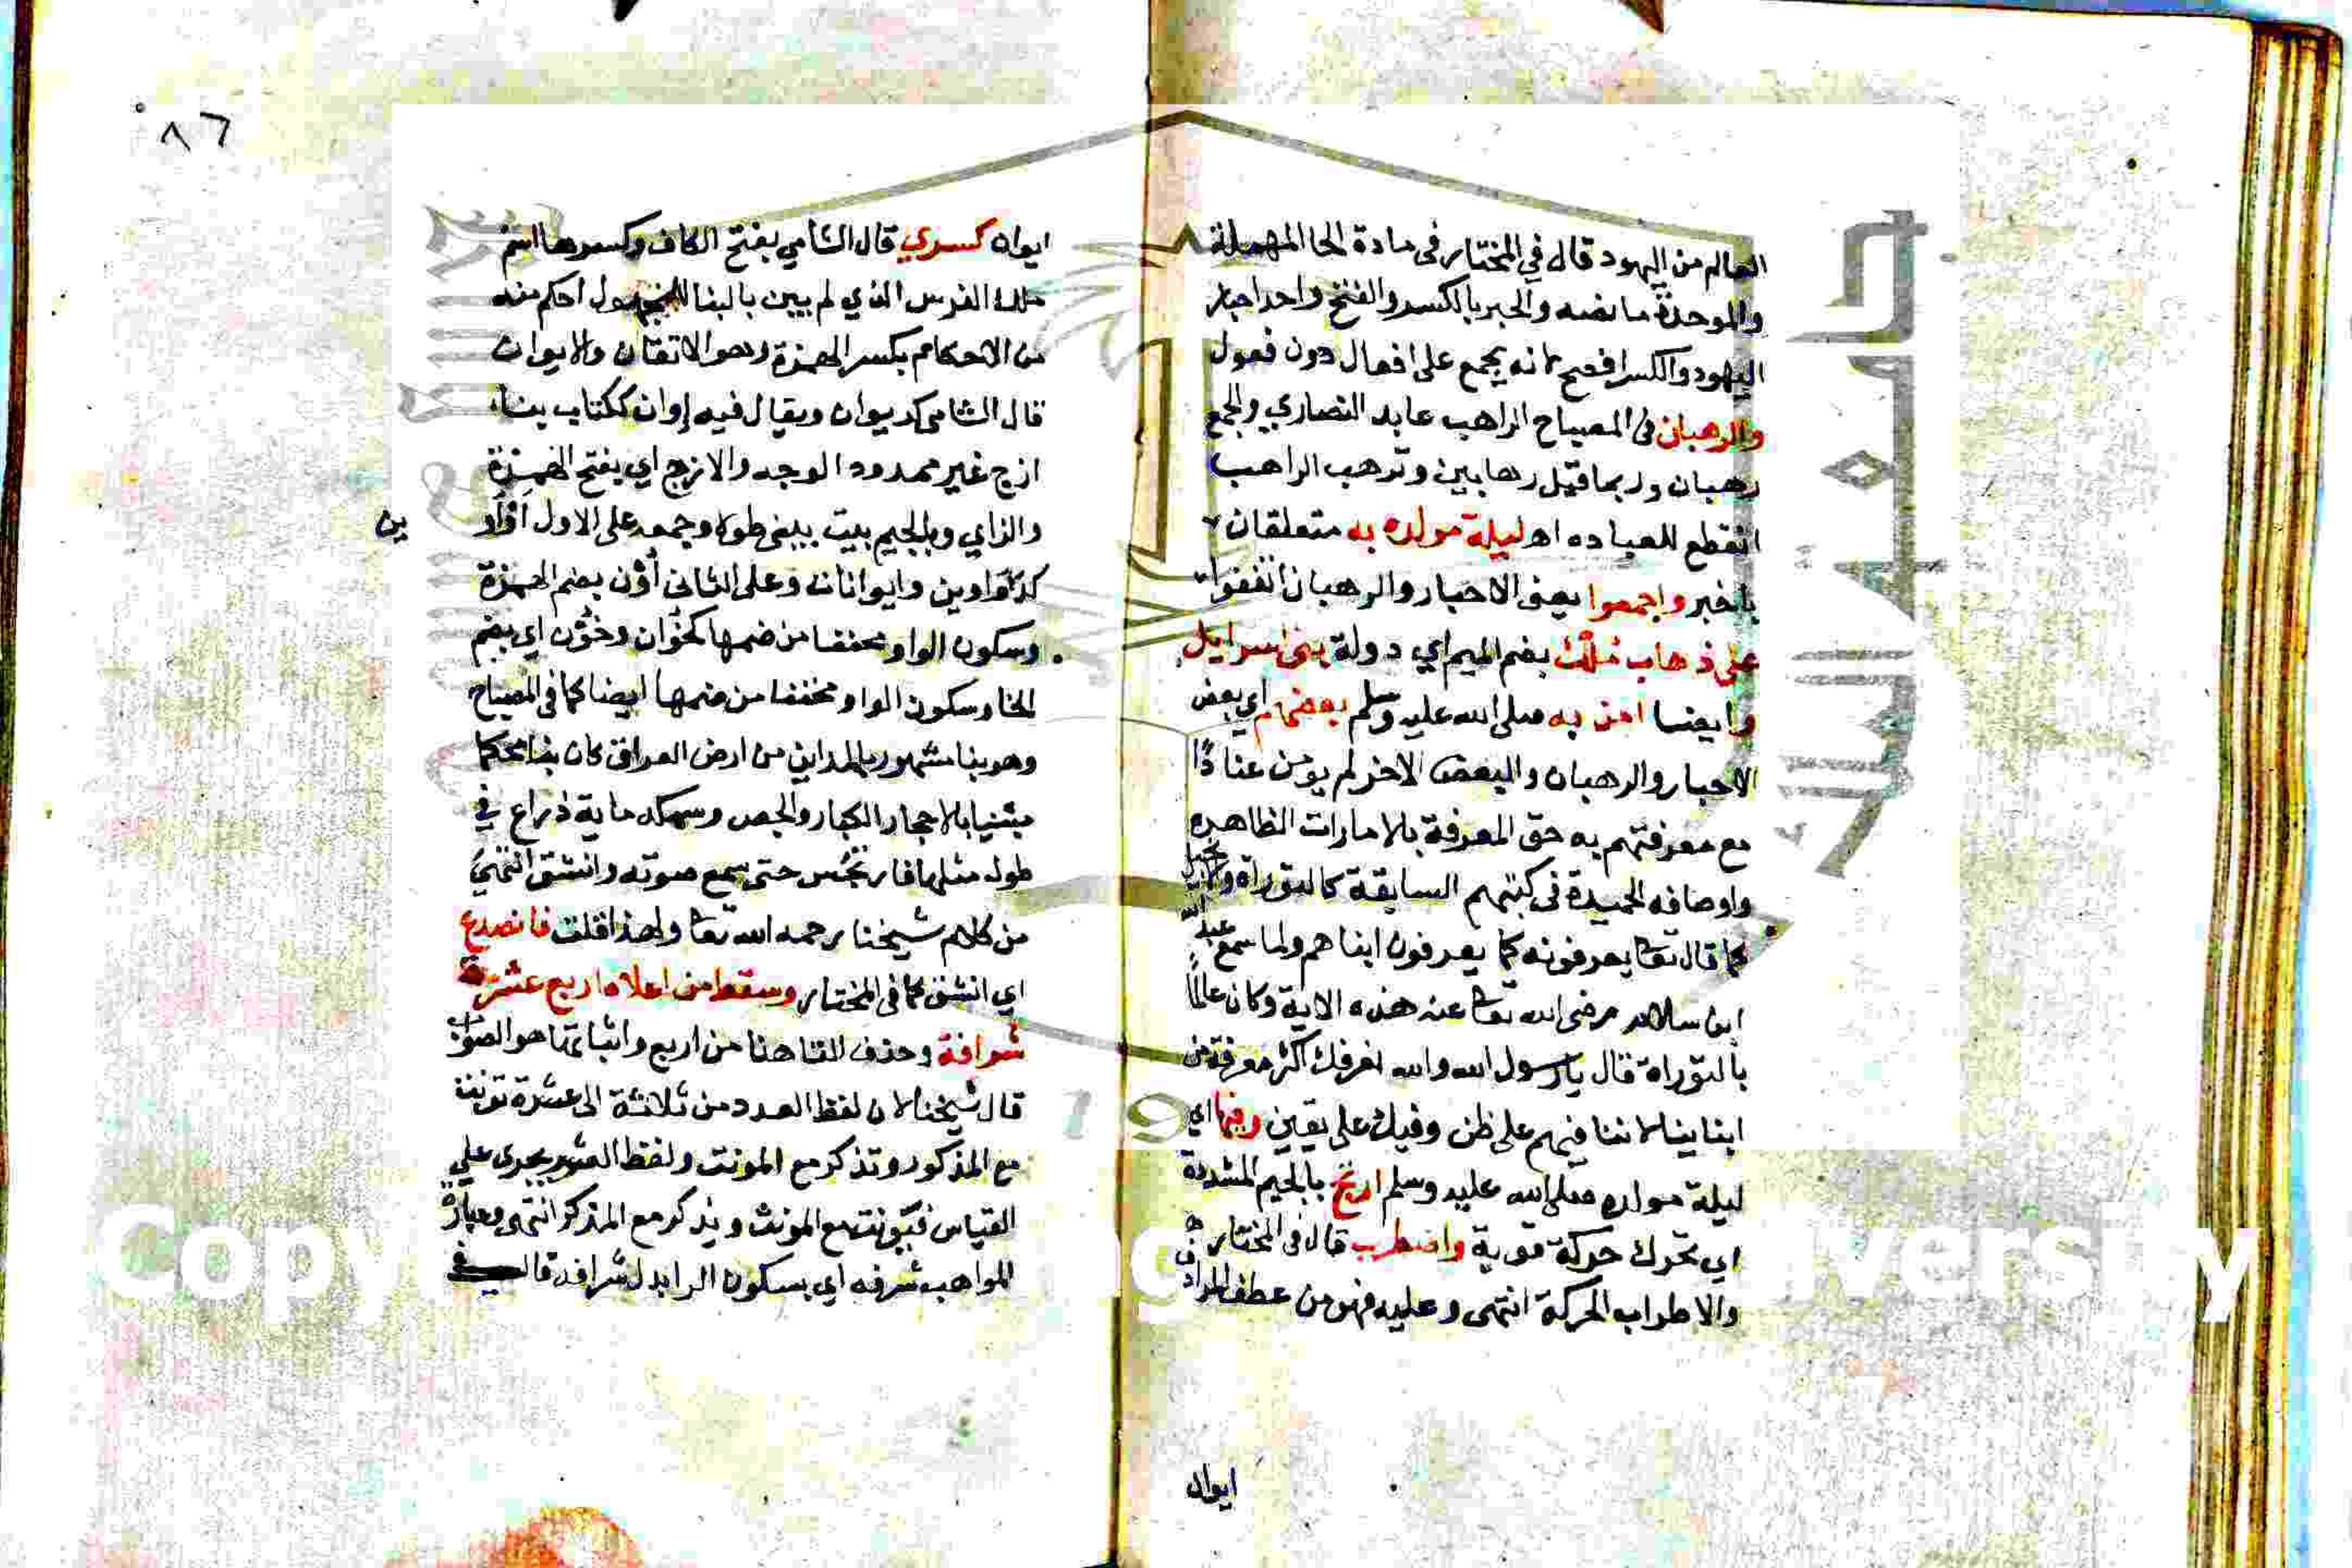 العالم من اليهود قال في المختار في مادة الحا المهملة
والموحدة ما نصه والحبر بالكسر والفتح واحد احبار
اليهود والكسر افصح لانه يجمع على افعال دون فعول
والرهبان في المصباح الراهب عابد النصاري والجمع
رهبان وربما قيل رهابين وترهب الراهب
انقطع للعباده اه ليلة مولده به متعلقان
باخبر واجمعوا يعني الاحبار والرهبان اتفقوا
على ذهاب ملك بضم الميم اي دولة بني اسرايل
وايضا امن به صلى الله عليه وسلم بعضهم اي بعض
الاحبار والرهبان والبعض الاخر لم يومن عنادًا
مع معرفتهم به حق المعرفة بالامارات الظاهره
واوصافه الحميدة في كتبهم السابقة كالتوراة
كما قال تعا يعرفونه كما يعرفون ابناهم ولما سمع عبد الله
ابن سلام رضي الله تعا عنه هذه الاية وكان عالمًا
بالتوراة قال يا رسول الله والله لنعرفك اكثر معرفة من
ابناينا لاننا فيهم على ظن وفيك على يقين وفيها اي
ليلة مولده صلى الله عليه وسلم ارتج بالجيم المشددة
اي تحرك حركة قوية واضطرب قال في المختار
والاطراب الحركة انتهى وعليه فهو من عطف المرادف
ايوان
٨٦
ايوان كسري قال الشامي بفتح الكاف وكسرها اسم
ملك الفرس الذي لم يبين بالبنا للمجهول احكم منه
من الاحكام بكسر الهمزة وهو الاتقان والايوان
قال الشامي كديوان ويقال فيه إوان ككتاب بناء
ازج غير ممدود الوجه والازج اي بفتح الهمزة
والزاي وبالجيم بيت يبنى طولا وجمعه على الاول اواو
ين
كدواوين وايوانات وعلى الثاني أوْن بضم الهمزة
وسكون الواو مخففا من ضمها كخوان وخوْن اي بضم
الخا وسكون الواو مخففا من ضمها ايضا كما في المصباح
وهو بنا مشهور بالمداين من ارض العراق كان بنا محكما
مبنيا بالاحجار الكبار والجص وسمكه ماية ذراع في
طول مثلها فارتجس حتى سمع صوته وانشق انتهي
من كلام شيخنا رحمه الله تعا ولهذا قلت فانصدع
اي انشق كما في المختار وسقط من اعلاه اربع عشرة
شرافة وحذف التا هنا من اربع واثباتها هو الصواب
قال شيخنا لان لفظ العدد من ثلاثة الى عشرة تونث
مع المذكور وتذكر مع المونث ولفظ العشر يجرى علي
القياس فيونث مع المونث ويذكر مع المذكر انتهى وعبارة
المواهب شرفه اي بسكون الرا بدل شرافه قال